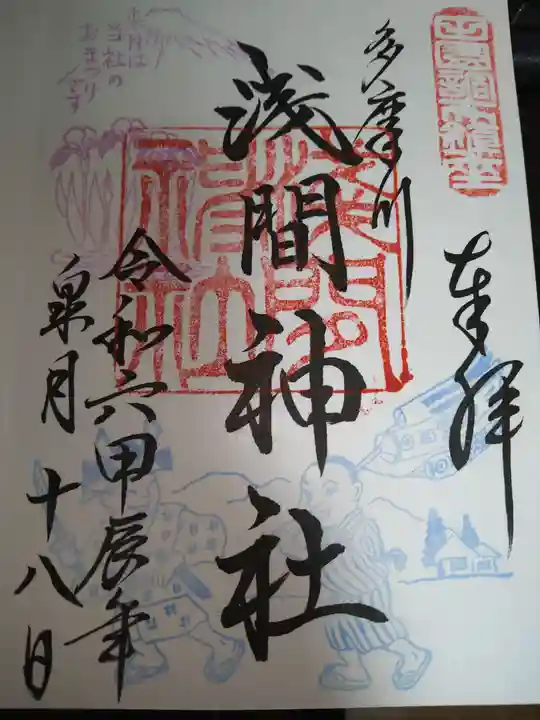 奉拝
多摩川
浅間神社
令和六甲辰年
皐月十八日
六月は
当社の
おまつり
です